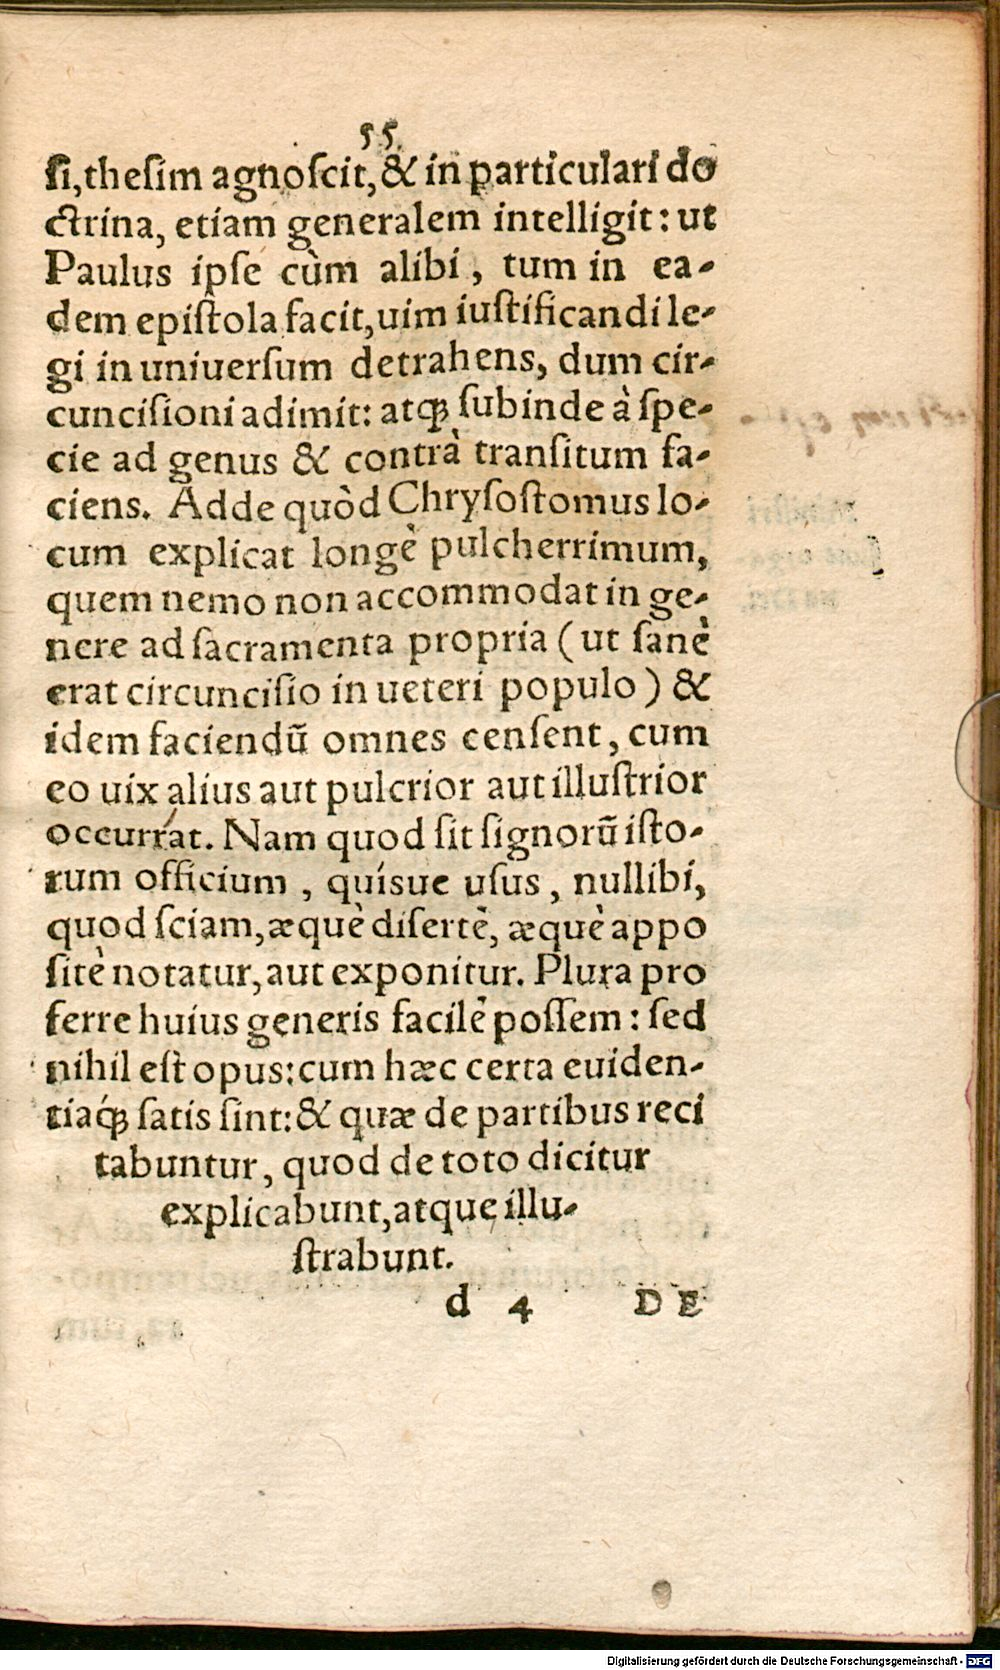 55.
si, thesim agnoscit, & in particulari do
ctrina, etiam generalem intelligit: ut
Paulus ipse cùm alibi, tum in ea-
dem epistola facit, uim iustificandi le-
gi in uniuersum detrahens, dum cir-
cuncisioni adimit: atq; subinde à spe-
cie ad genus & contrà transitum fa-
ciens. Adde quòd Chrysostomus lo-
cum explicat longè pulcherrimum,
quem nemo non accommodat in ge-
nere ad sacramenta propria (ut sanè
erat circuncisio in ueteri populo) &
idem faciendũ omnes censent, cum
eo uix alius aut pulcrior aut illustrior
occurrat. Nam quod sit signorũ isto-
rum officium, quísue usus, nullibi,
quod sciam, æquè disertè, æquè appo
sitè notatur, aut exponitur. Plura pro
ferre huius generis facilè possem: sed
nihil est opus: cum hæc certa euiden-
tiaq́; satis sint: & quæ de partibus reci
tabuntur, quod de toto dicitur
explicabunt, atque illu-
strabunt.
d 4 DE
Digitalisierung gefördert durch die Deutsche Forschungsgemeinschaft - DFG